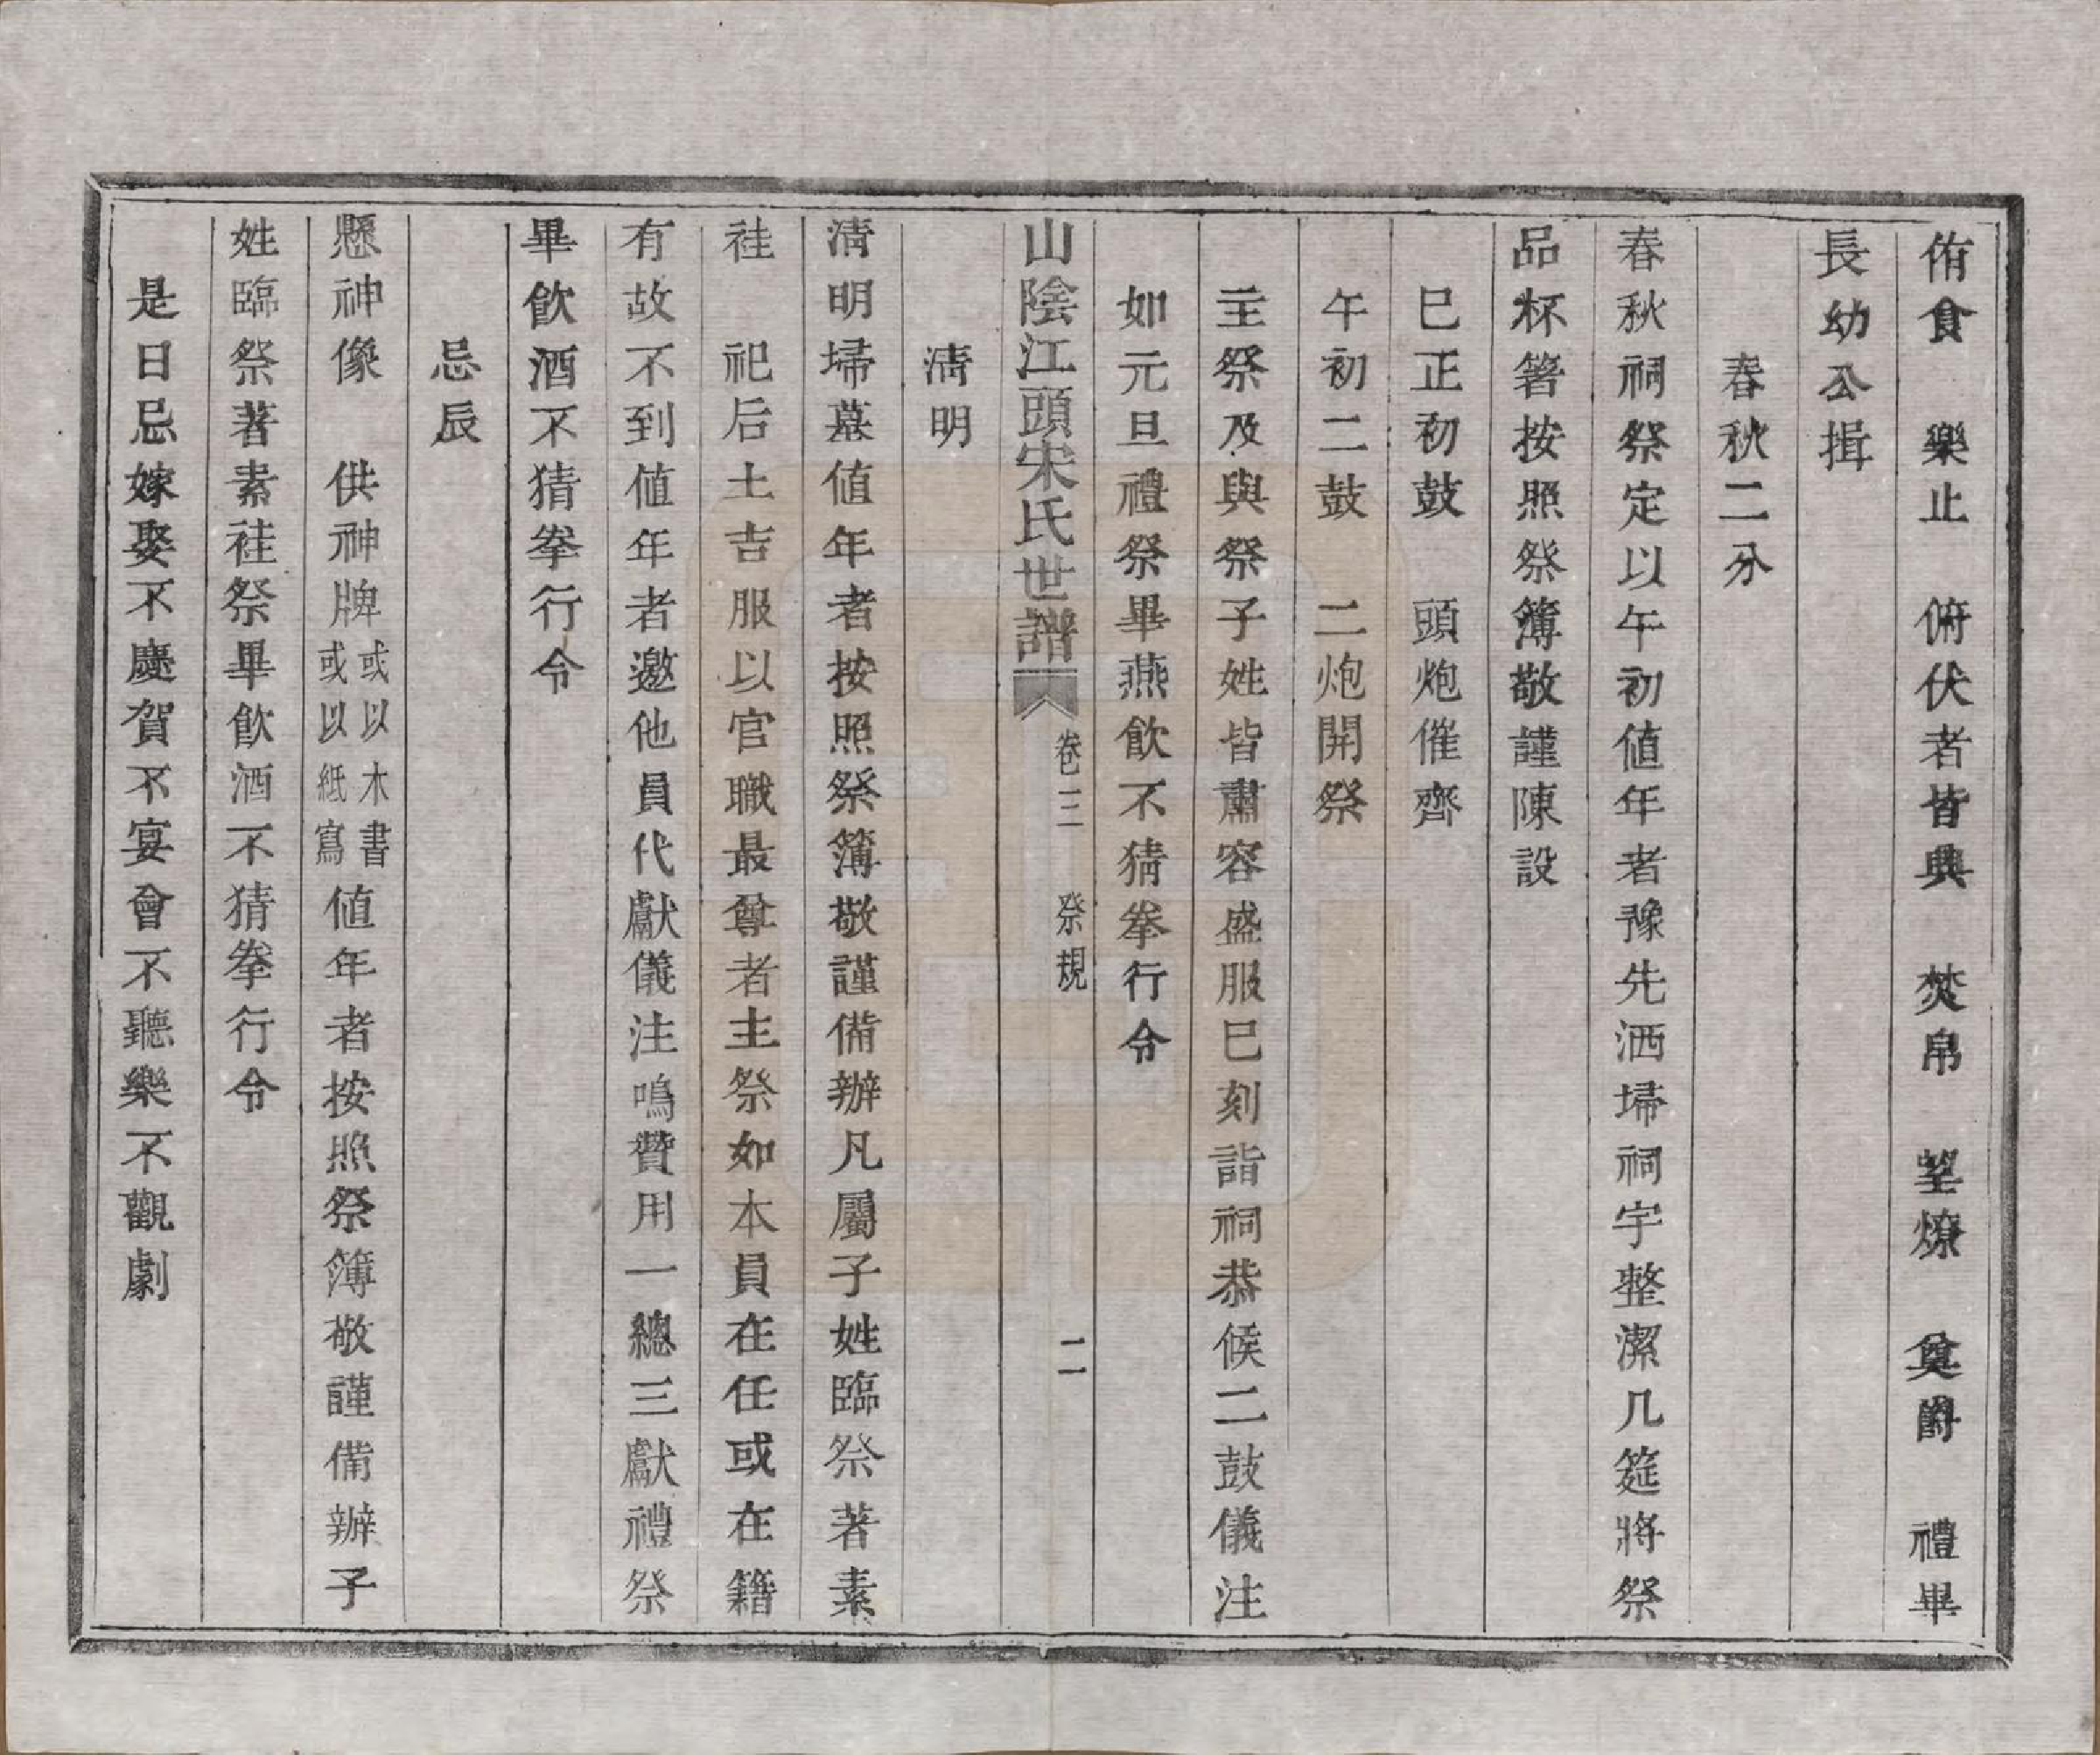 侑食　樂止　俯伏者皆興　焚帛　望燎　奠爵　禮畢
長幼公揖
春秋二分
春秋祠祭定以午初値年者豫先洒埽祠宇整潔几筵將祭
品杯箸按照祭簿敬謹陳設
巳正初鼓　頭炮催齊
午初二鼓　二炮開祭
主祭及與祭子姓皆肅容盛服巳刻詣祠恭候二鼓儀注
如元旦禮祭畢燕飮不猜拳行令
山陰江頭宋氏世譜　卷三　祭規　二
淸明
淸明埽墓値年者按照祭簿敬謹備辦凡屬子姓臨祭著素
袿　祀后土吉服以官職最尊者主祭如本員在任或在籍
有故不到値年者邀他員代獻儀注鳴贊用一總三獻禮祭
畢飮酒不猜拳行令
忌辰
懸神像　供神牌或以木書或以紙寫値年者按照祭簿敬謹備辦子
姓臨祭著素袿祭畢飮酒不猜拳行令
是日忌嫁娶不慶賀不宴會不聽樂不觀劇